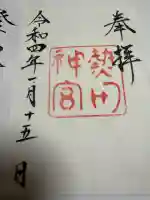 奉拝
熱田
神宮
令和四年一月十五日